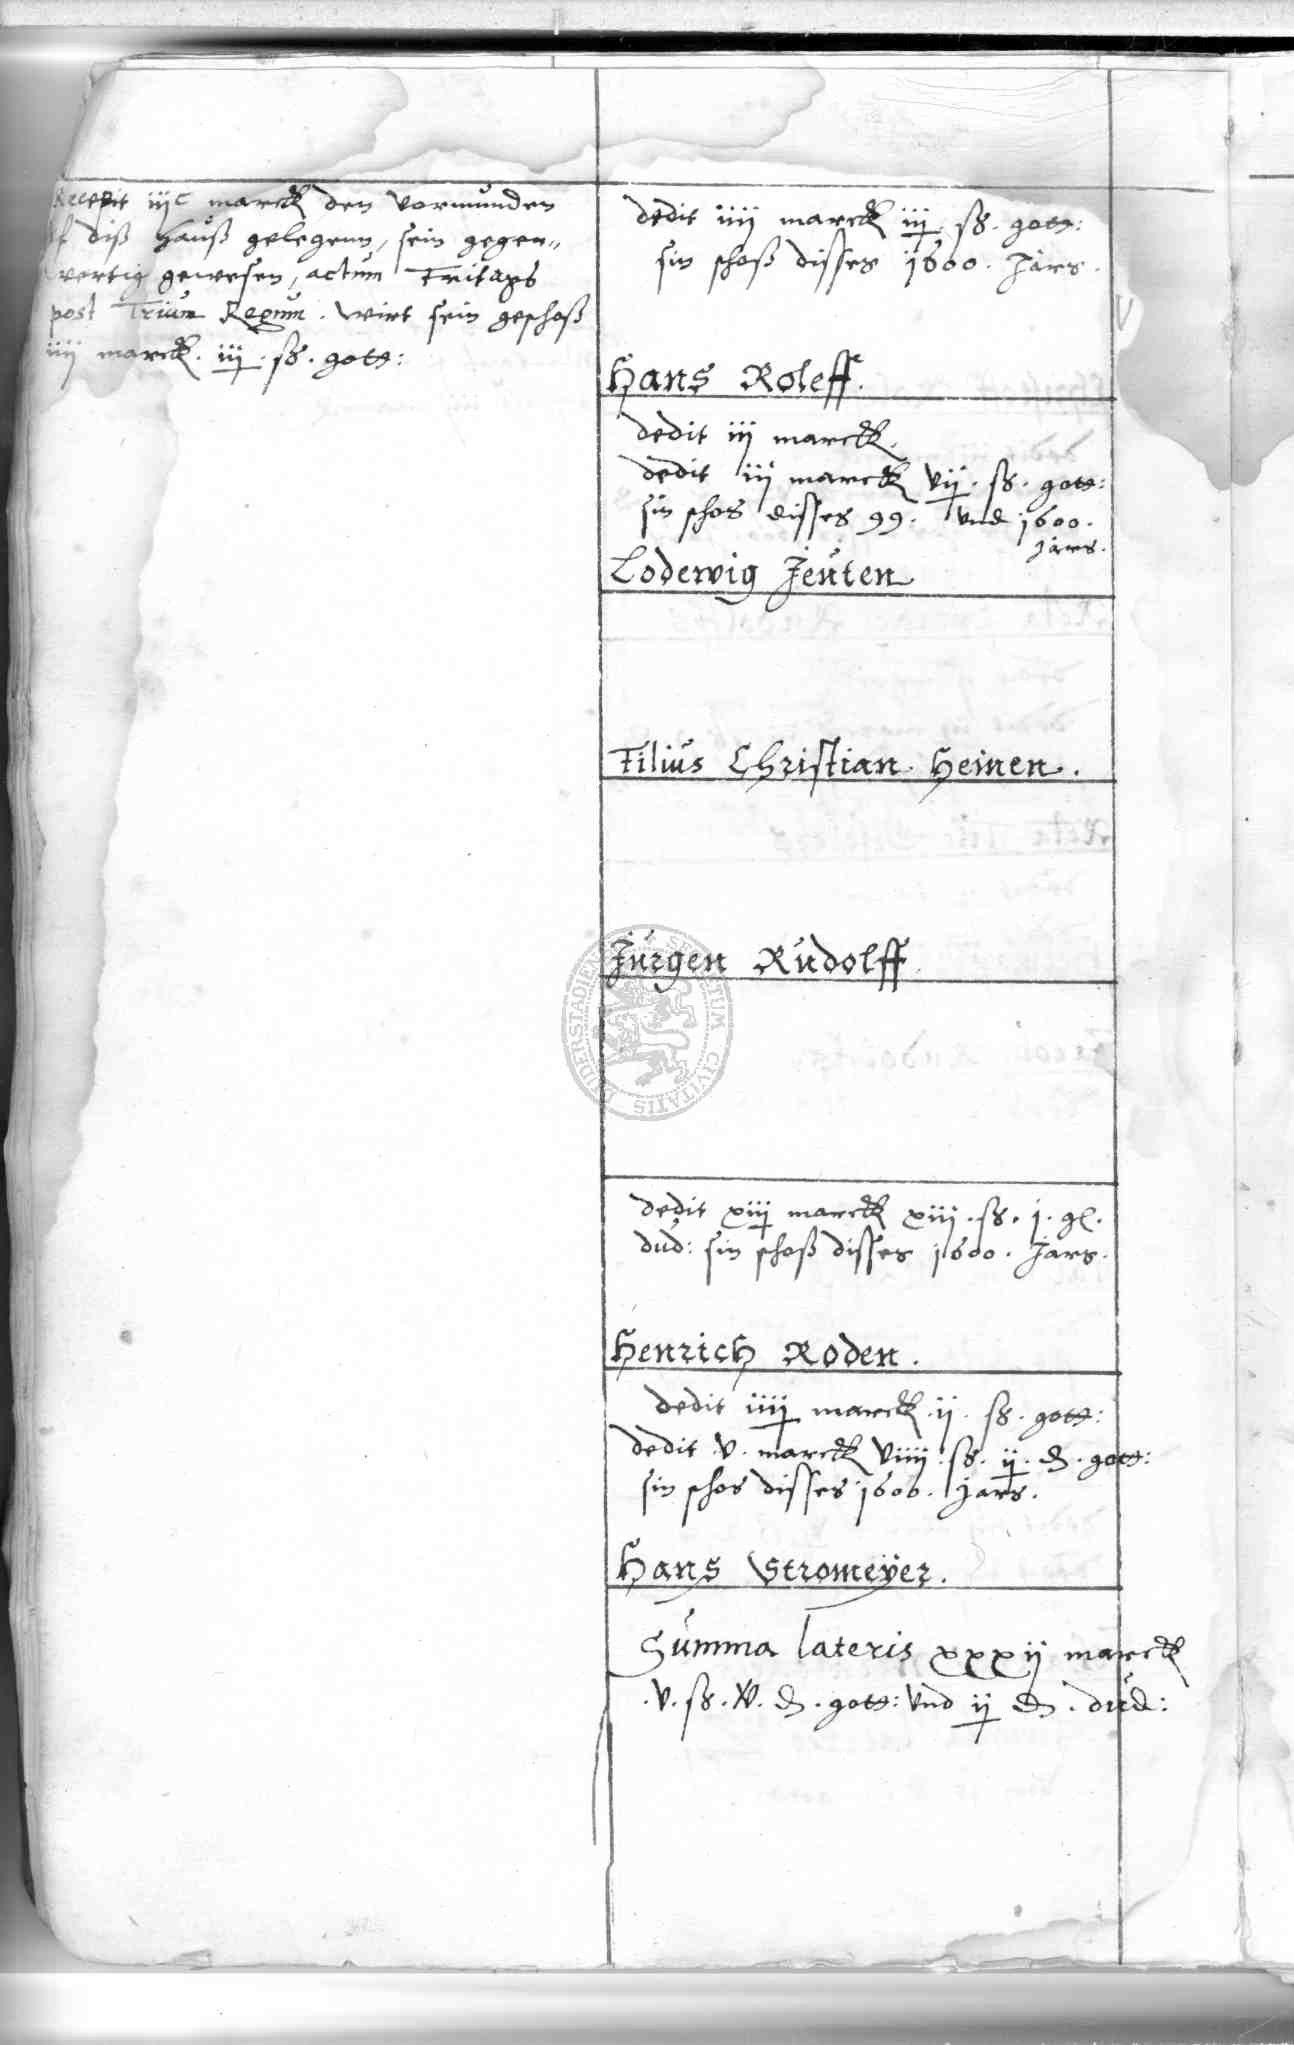 Recepit iijc marck den vormunden
uf diß hauß gelegenn, sein gegen„
wertig gewesen, actum Fritags
post Trium Regum. wirt sein geschoß
iiij marck. iij. ß. gott:
dedit iiij marck iij ß. gott:
sin schoß disses 1600. Jars.
Hans Roleff.
dedit iij marck.
dedit iij marck vij. ß. gott:
sin schos disses 99. vnd 1600.
Jars.
Lodewig Jeuten
Filius Christian Heinen.
Jurgen Rudolff.
dedit xiij marck xiij. ß. j. gl.
dud: sin schoß disses 1600. Jars.
Henrich Roden.
dedit iiij marck. ij. ß. gott:
dedit v. marck viiij. ß. ij. d. gott:
sin schos disses 1600. Jars.
Hans Stromeÿer.
Summa lateris xxxij marck
.v. ß. iv. d. gott: vnd ij d. dud:
SECRETUM CIVITATIS DUDERSTADIENSIS